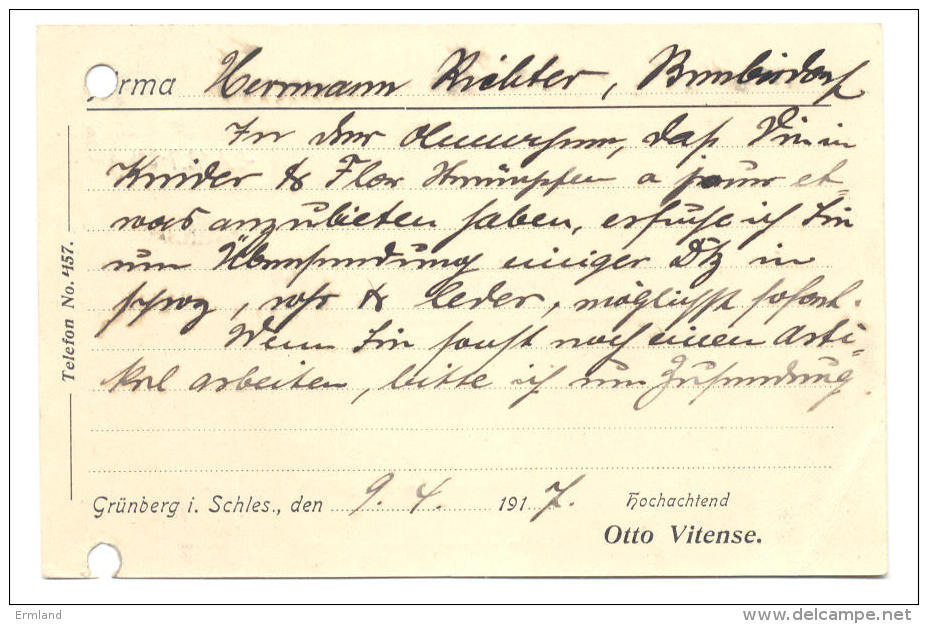 Firma Herrmann Richter, Brünbesdorf
In der Annahme, daß Sie in
Kinder & Flor Strümpfen a jour et-
was anzubieten haben, ersuche ich Sie
um Übersendung einiger Dtz in
schwz, rohr & leder, möglichst sofort.
Wenn Sie sonst noch einen Arti-
kel arbeiten, bitte ich um Zusendung.
Telefon No. 457.
Grünberg i. Schles., den 9. 4. 1917.
Hochachtend
Otto Vitense.
Ermland
www.delcampe.net